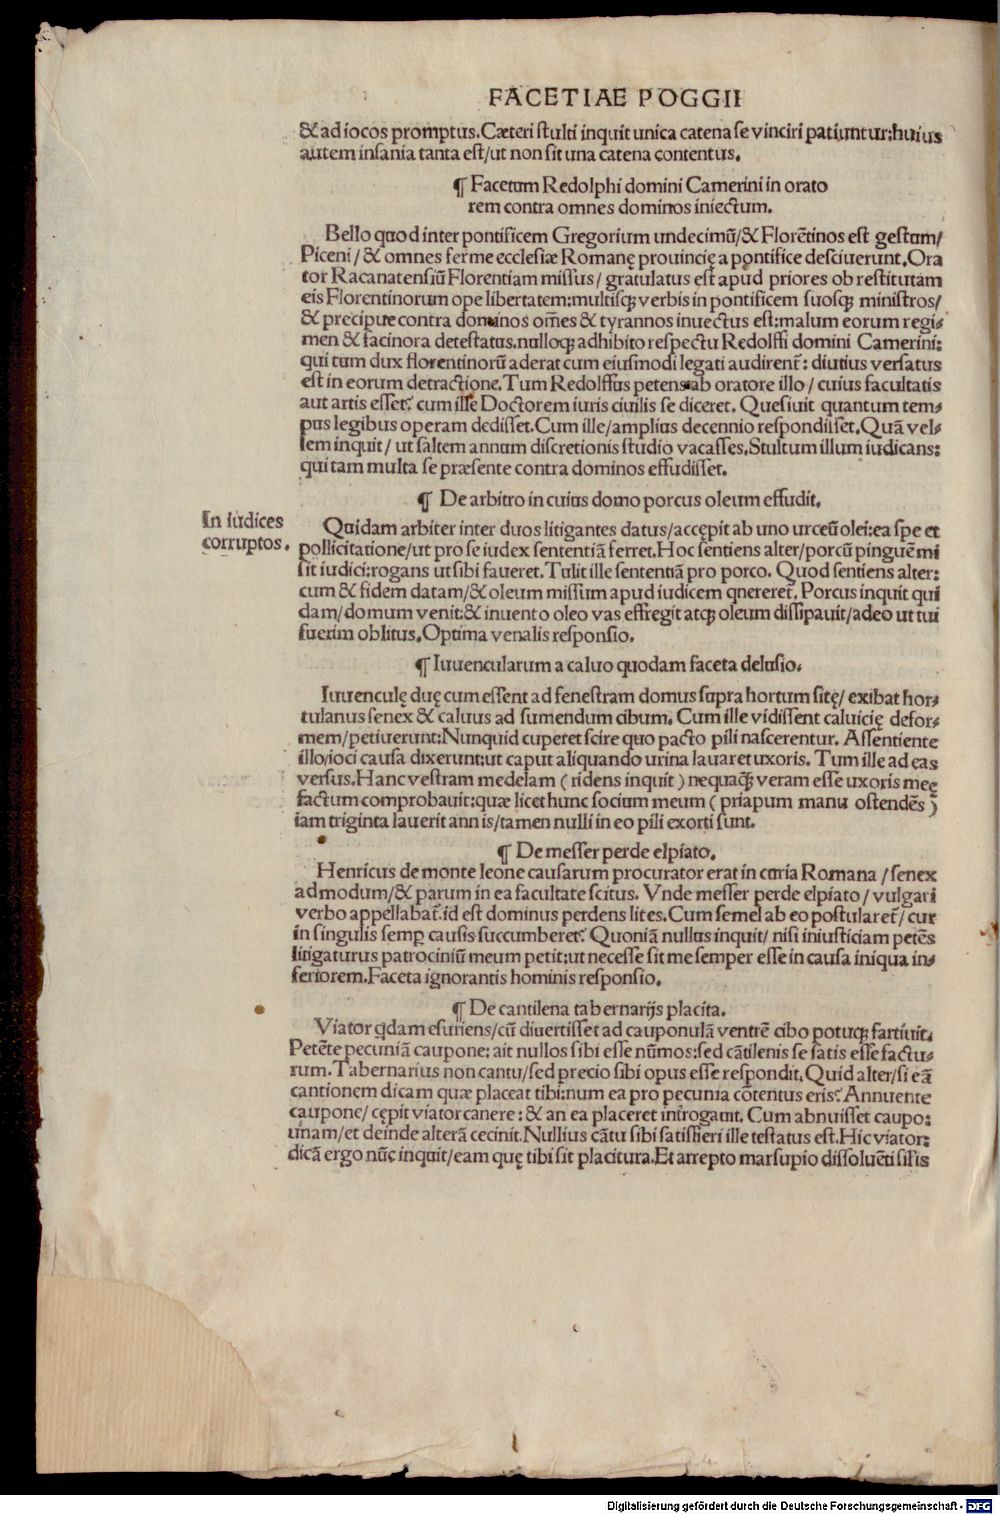 FACETIAE POGGII
& ad iocos promptus. Cæteri stulti inquit unica catena se vinciri patiuntur: huius
autem insania tanta est/ ut non sit una catena contentus.
¶ Facetum Redolphi domini Camerini in orato
rem contra omnes dominos iniectum.
Bello quod inter pontificem Gregorium undecimū/ & Florētinos est gestum/
Piceni/ & omnes ferme ecclesiæ Romanę prouincię a pontifice desciuerunt. Ora
tor Racanatensiū Florentiam missus/ gratulatus est apud priores ob restitutam
eis Florentinorum ope libertatem: multisqꝫ verbis in pontificem suosqꝫ ministros/
& precipue contra dominos om̄es & tyrannos inuectus est: malum eorum regi-
men & facinora detestatus. nulloqꝫ adhibito respectu Redolffi domini Camerini:
qui tum dux florentinorū aderat cum eiusmodi legati audirent᷑: diutius versatus
est in eorum detractione. Tum Redolffus petens ab oratore illo/ cuius facultatis
aut artis esset? cum ille Doctorem iuris ciuilis se diceret. Quesiuit quantum tem-
pus legibus operam dedisset. Cum ille/ amplius decennio respondisset. Quā vel-
lem inquit/ ut saltem annum discretionis studio vacasses. Stultum illum iudicans:
qui tam multa se præsente contra dominos effudisset.
¶ De arbitro in cuius domo porcus oleum effudit.
In iudices
corruptos.
Quidam arbiter inter duos litigantes datus/ accępit ab uno urceū olei: ea spe et
pollicitatione/ ut pro se iudex sententiā ferret. Hoc sentiens alter/ porcū pinguē mi
sit iudici: rogans ut sibi faueret. Tulit ille sententiā pro porco. Quod sentiens alter:
cum & fidem datam/ & oleum missum apud iudicem qnereret᷑. Porcus inquit qui
dam/ domum venit: & inuento oleo vas effregit atqꝫ oleum dissipauit/ adeo ut tui
fuerim oblitus. Optima venalis responsio.
¶ Iuuencularum a caluo quodam faceta delusio.
Iuuenculę duę cum essent ad fenestram domus supra hortum sitę/ exibat hor-
tulanus senex & caluus ad sumendum cibum. Cum ille vidissent caluicię defor-
mem/ petiuerunt: Nunquid cuperet scire quo pacto pili nascerentur. Assentiente
illo/ ioci causa dixerunt: ut caput aliquando urina lauaret uxoris. Tum ille ad eas
versus. Hanc vestram medelam (ridens inquit) nequaqꝫ̄ veram esse uxoris meę
factum comprobauit: quæ licet hunc socium meum (priapum manu ostendēs)
iam triginta lauerit annis/ tamen nulli in eo pili exorti sunt.
¶ De messer perde elpiato.
Henricus de monte leone causarum procurator erat in curia Romana / senex
admodum/ & parum in ea facultate scitus. Vnde messer perde elpiato/ vulgari
verbo appellabat᷑. id est dominus perdens lites. Cum semel ab eo postularet᷑/ cur
in singulis semꝑ causis succumberet? Quoniā nullus inquit/ nisi iniusticiam petēs
litigaturus patrociniū meum petit: ut necesse sit me semper esse in causa iniqua in-
feriorem. Faceta ignorantis hominis responsio.
¶ De cantilena tabernarijs placita.
Viator qdam esuriens/ cū diuertisset ad cauponulā ventrē cibo potuqꝫ fartiuit.
Petēte pecuniā caupone: ait nullos sibi esse nūmos: sed cātilenis se satis esse factu-
rum. Tabernarius non cantu/ sed precio sibi opus esse respondit. Quid alter/ si eā
cantionem dicam quæ placeat tibi: num ea pro pecunia cōtentus eris? Annuente
caupone/ cępit viator canere: & an ea placeret int̄rogauit. Cum abnuisset caupo:
unam/ et deinde alterā cecinit. Nullius cātu sibi satisfieri ille testatus est. Hic viator:
dicā ergo nūc inquit/ eam quę tibi sit placitura. Et arrepto marsupio dissoluēti silis
Digitalisierung gefördert durch die Deutsche Forschungsgemeinschaft - DFG